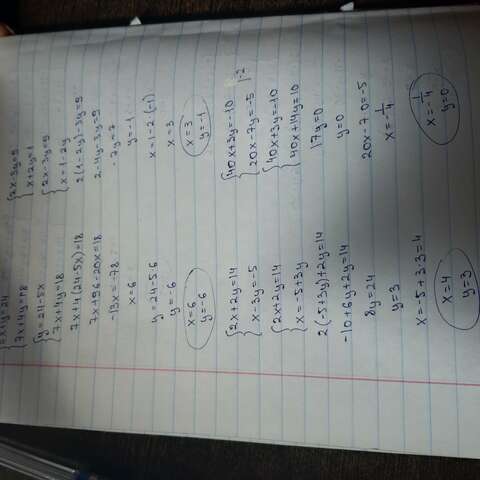 5x+y=24
7x+4y=18
y=24-5x
7x+4y=18
7x+4(24-5x)=18
7x+96-20x=18
-13x=-78
x=6
y=24-5·6
y=-6
x=6
y=-6
2x+2y=14
x-3y=-5
2x+2y=14
x=-5+3y
2(-5+3y)+2y=14
-10+6y+2y=14
8y=24
y=3
x=-5+3·3=4
x=4
y=3
2x-3y=9
x+2y=1
2x-3y=9
x=1-2y
2(1-2y)-3y=9
2-4y-3y=9
-7y=7
y=-1
x=1-2·(-1)
x=3
x=3
y=-1
40x+3y=-10
20x-7y=-5 |·-2
40x+3y=-10
-40x+14y=10
17y=0
y=0
20x-7·0=-5
x=-1/4
x=-1/4
y=0